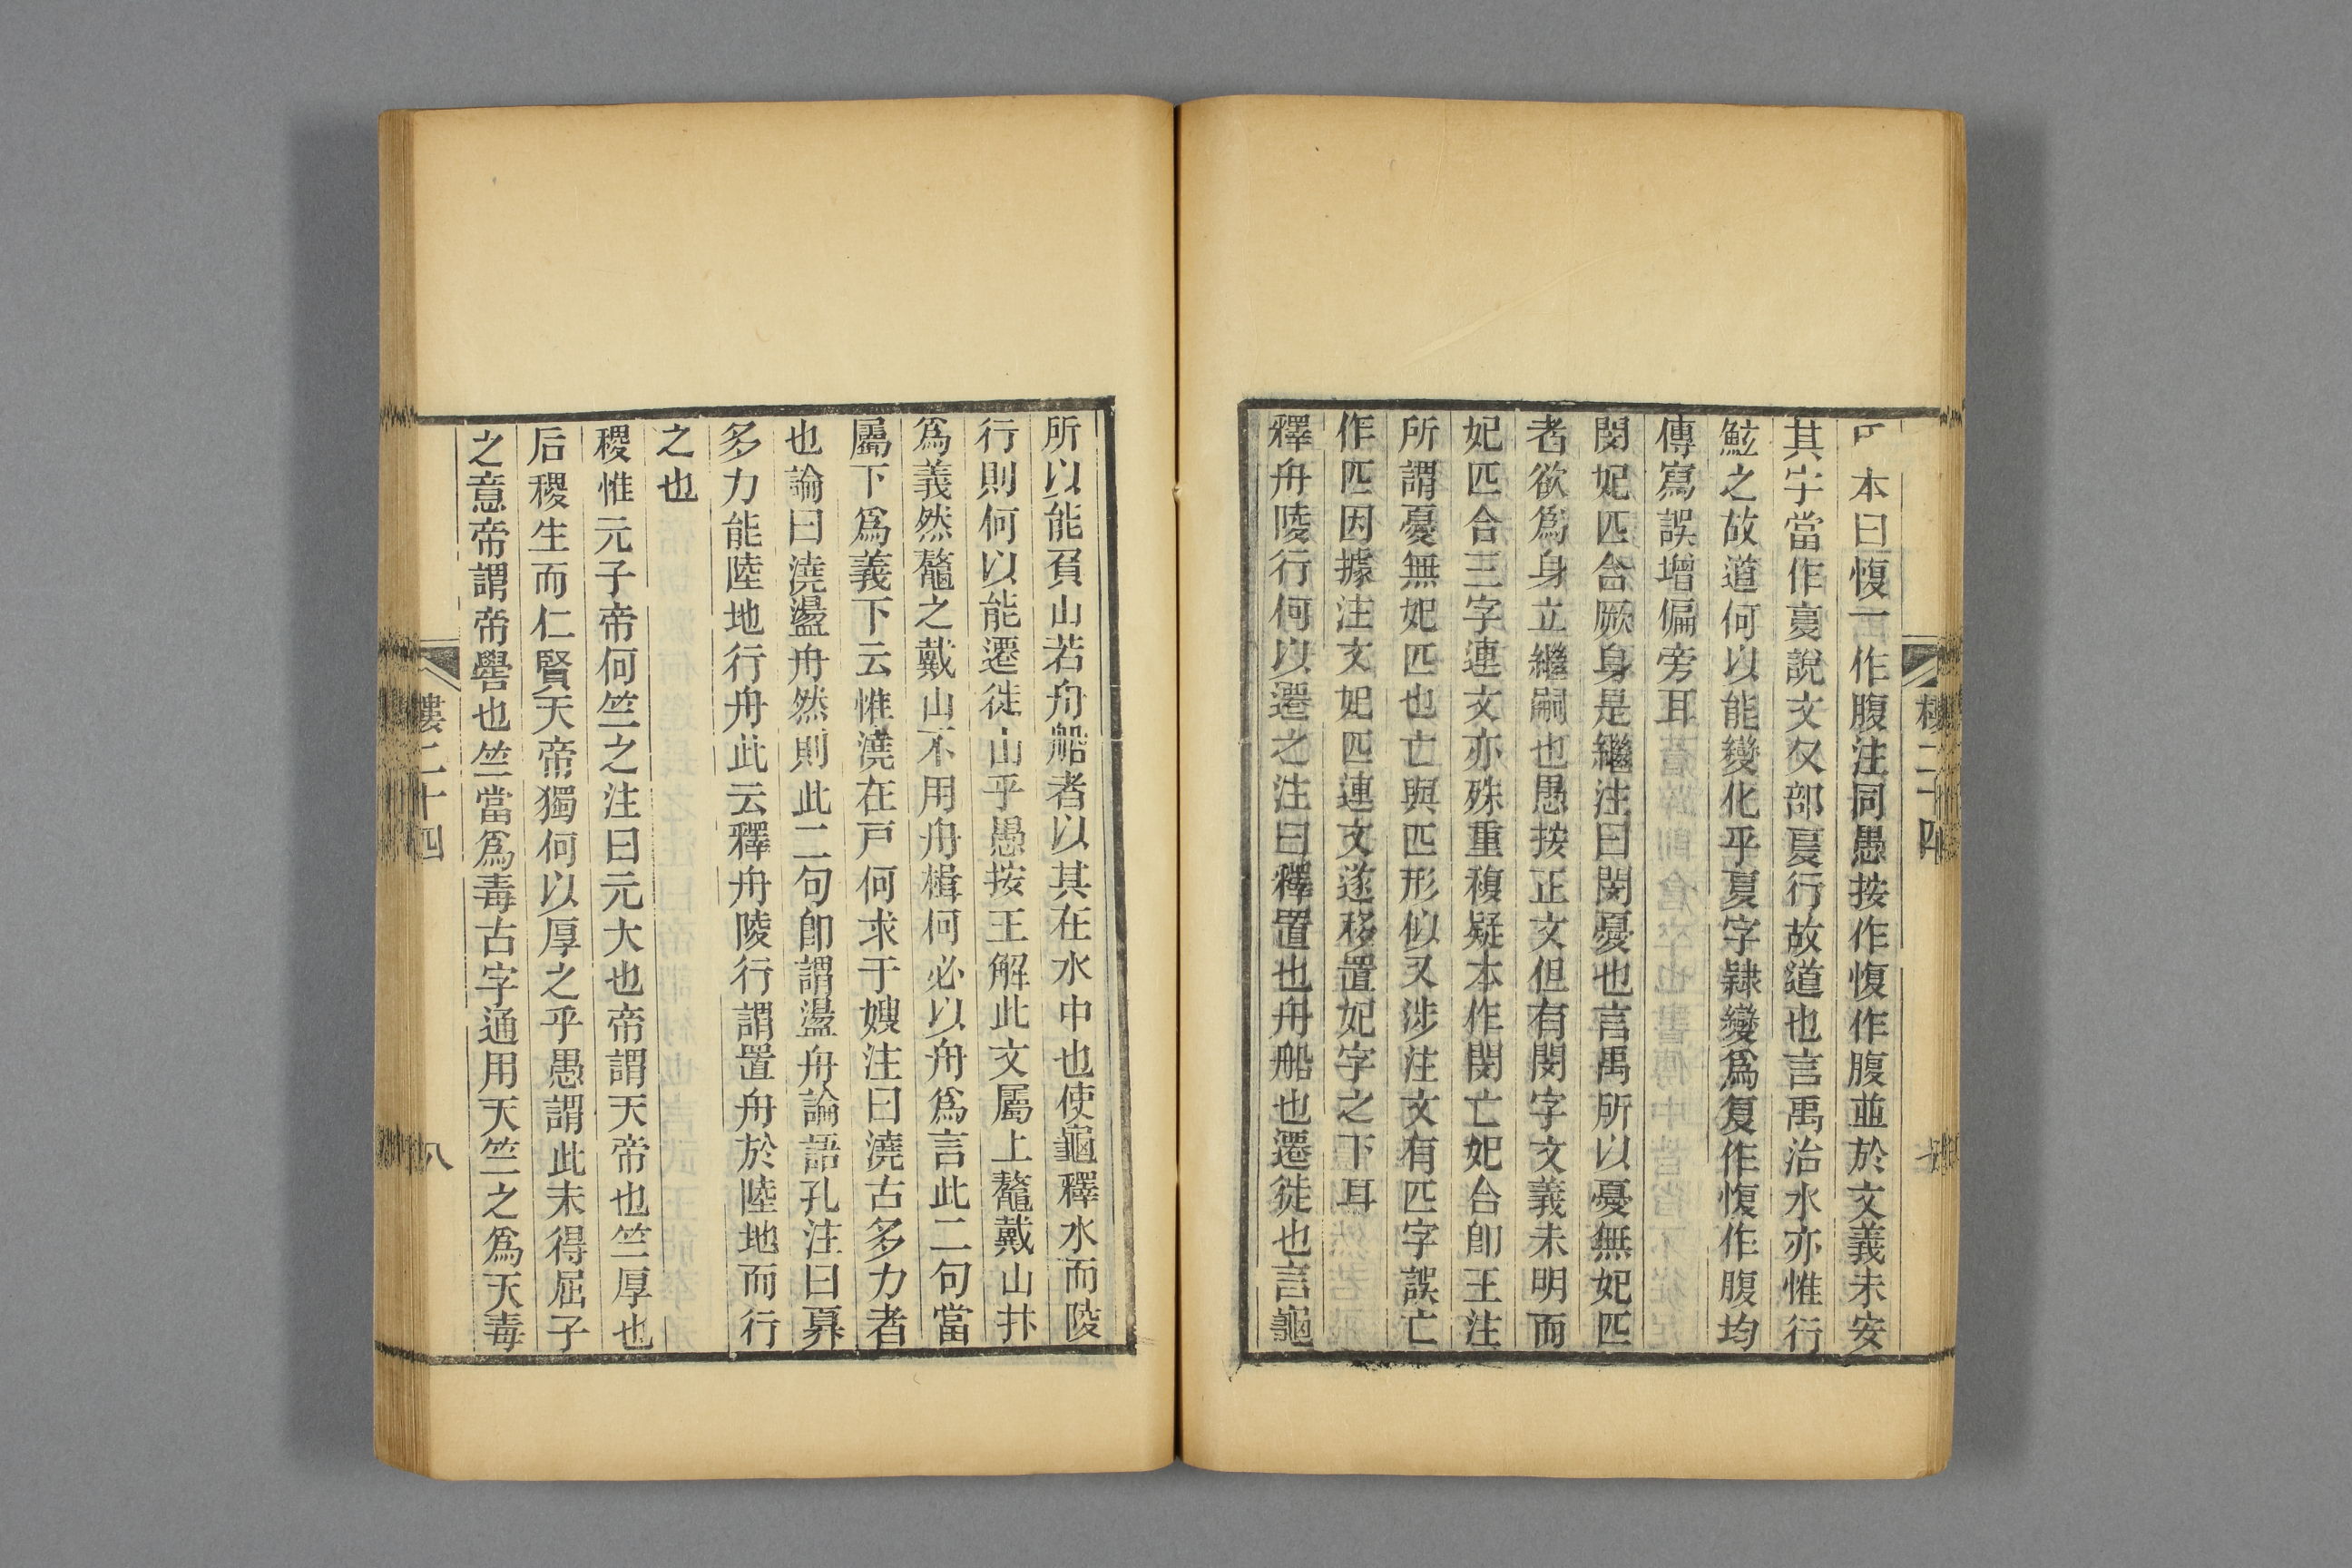 本曰愎一作腹注同愚按作愎作腹並於文義未安
其字當作夏說文夊部夏行故道也言禹治水亦惟行
鮌之故道何以能變化乎夏字隸變爲复作愎作腹均
傳寫誤增偏旁耳
閔妃匹合厥身是繼注曰閔憂也言禹所以憂無妃匹
者欲爲身立繼嗣也愚按正文但有閔字文義未明而
妃匹合三字連文亦殊重複疑本作閔亡妃合卽王注
所謂憂無妃匹也亡與匹形似又涉注文有匹字誤亡
作匹因據注文妃匹連文遂移置妃字之下耳
釋舟陵行何以遷之注曰釋置也舟船也遷徙也言龜
樓二十四
七
所以能負山若舟船者以其在水中也使龜釋水而陵
行則何以能遷徙山乎愚按王解此文屬上鼇戴山抃
爲義然鼇之戴山不用舟楫何必以舟爲言此二句當
屬下爲義下云惟澆在戸何求于嫂注曰澆古多力者
也論曰澆盪舟然則此二句卽謂盪舟論語孔注曰奡
多力能陸地行舟此云釋舟陵行謂置舟於陸地而行
之也
稷惟元子帝何竺之注曰元大也帝謂天帝也竺厚也
后稷生而仁賢天帝獨何以厚之乎愚謂此未得屈子
之意帝謂帝嚳也竺當爲毒古字通用天竺之爲天毒
樓二十四
八